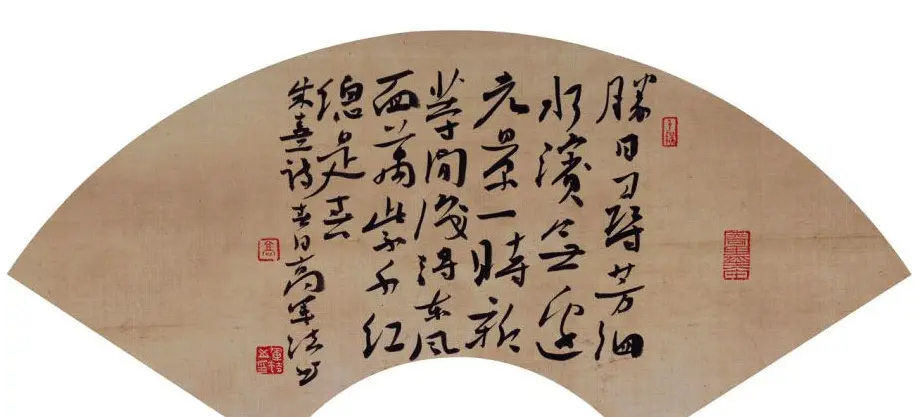 勝日尋芳泗
水濱無邊
光景一時新
等閒識得東風
面萬紫千紅
總是春
朱熹詩春日高軍法書